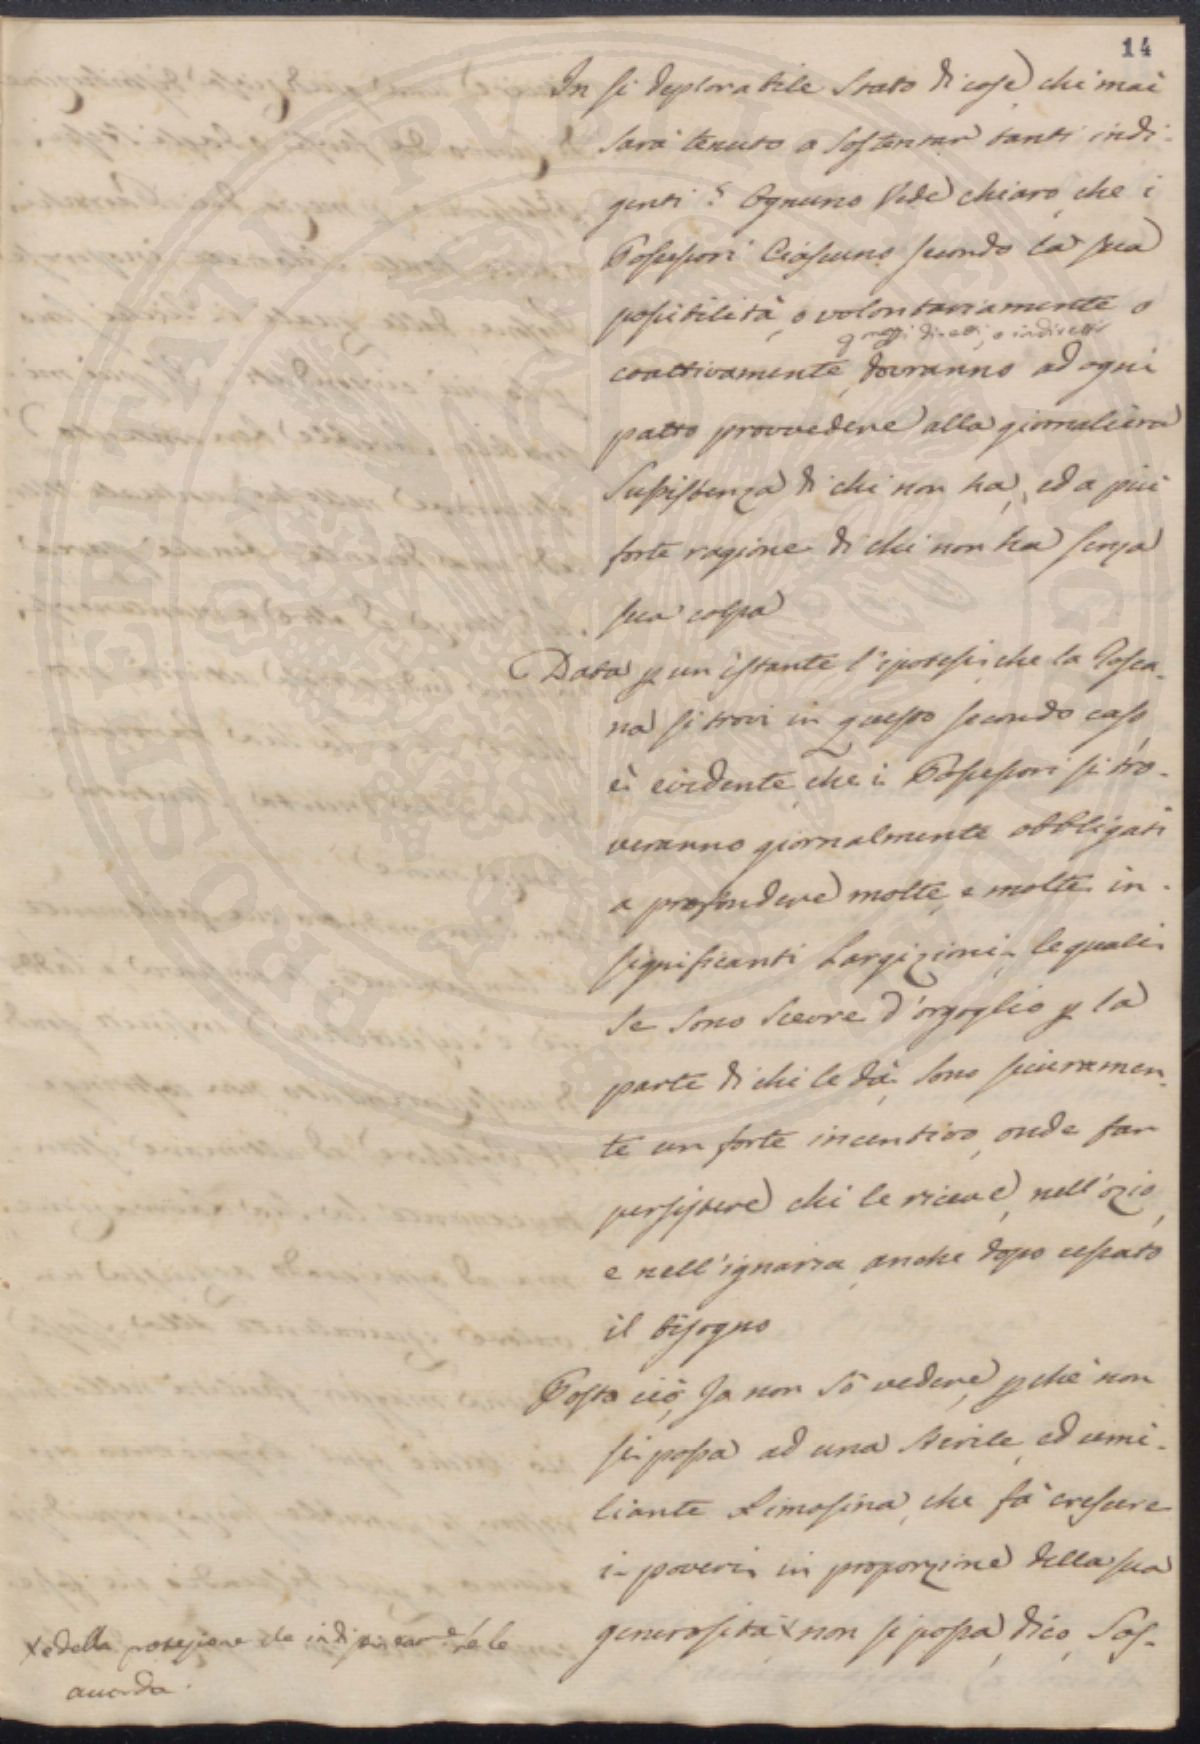 14
In sì deplorabile Stato di cose, chi mai
sarà tenuto a sostentar tanti indi-
genti? Ognuno Vede chiaro, che i
Possessori Ciascuno secondo la sua
possibilità, o volontariamente o
p mezzi diretti, o indiretti
coattivamente, dovranno ad ogni
patto provvedere alla giornaliera
Sussistenza di chi non ha, ed a più
forte ragione di chi non ha senza
sua colpa
Data p un istante l'ipotesi, che la Tosca-
na si trovi in questo secondo caso,
è evidente, che i Possessori si tro-
veranno giornalmente obbligati
a profondere molte, e molte in-
significanti Largizioni, le quali
se sono scevre d'orgoglio p la
parte di chi le dà, sono sicuramen-
te un forte incentivo, onde far
persistere chi le riceve, nell'ozio,
e nell'ignavia, anche dopo cessato
il bisogno
Posto ciò, Io non sò vedere, pchè non
si possa ad una sterile, ed umi-
liante Limosina, che fà crescere
i poveri in proporzione della sua
generosità X non si possa, dico, Sos-
X e della protezione che le
accorda.
POSTERITATI PUBLICE